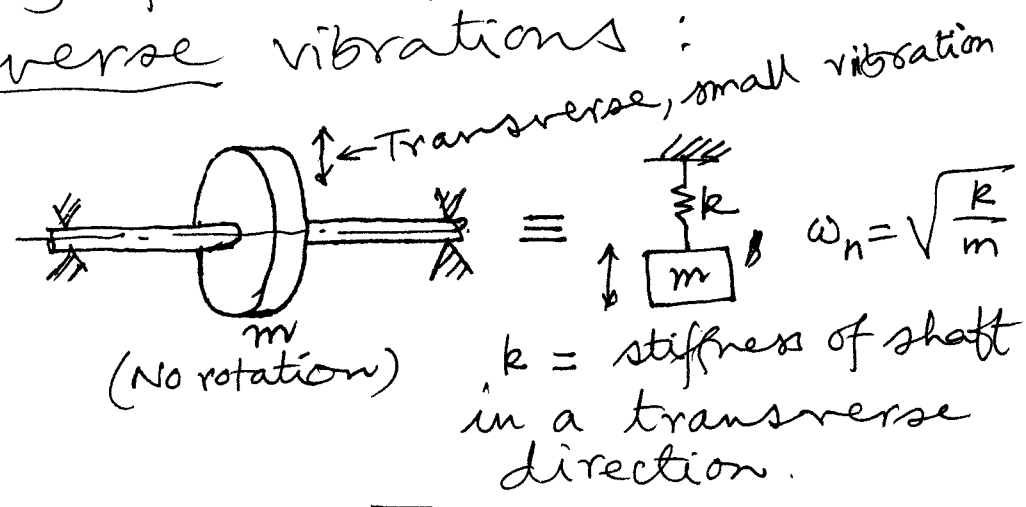 verse vibrations :
Transverse, small vibration
k
m
ωn = √k/m
m
(No rotation)
k = stiffness of shaft
in a transverse
direction.